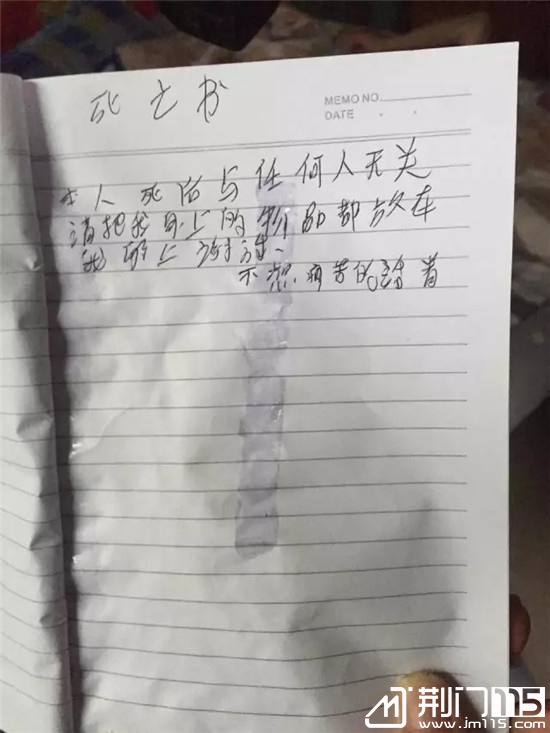 死亡书
MEMO NO.
DATE
本人死后与任何人无关
请把我身上的物品都放在
我身上 谢谢
不想 痛苦的 着
荆门115
www.jm115.com